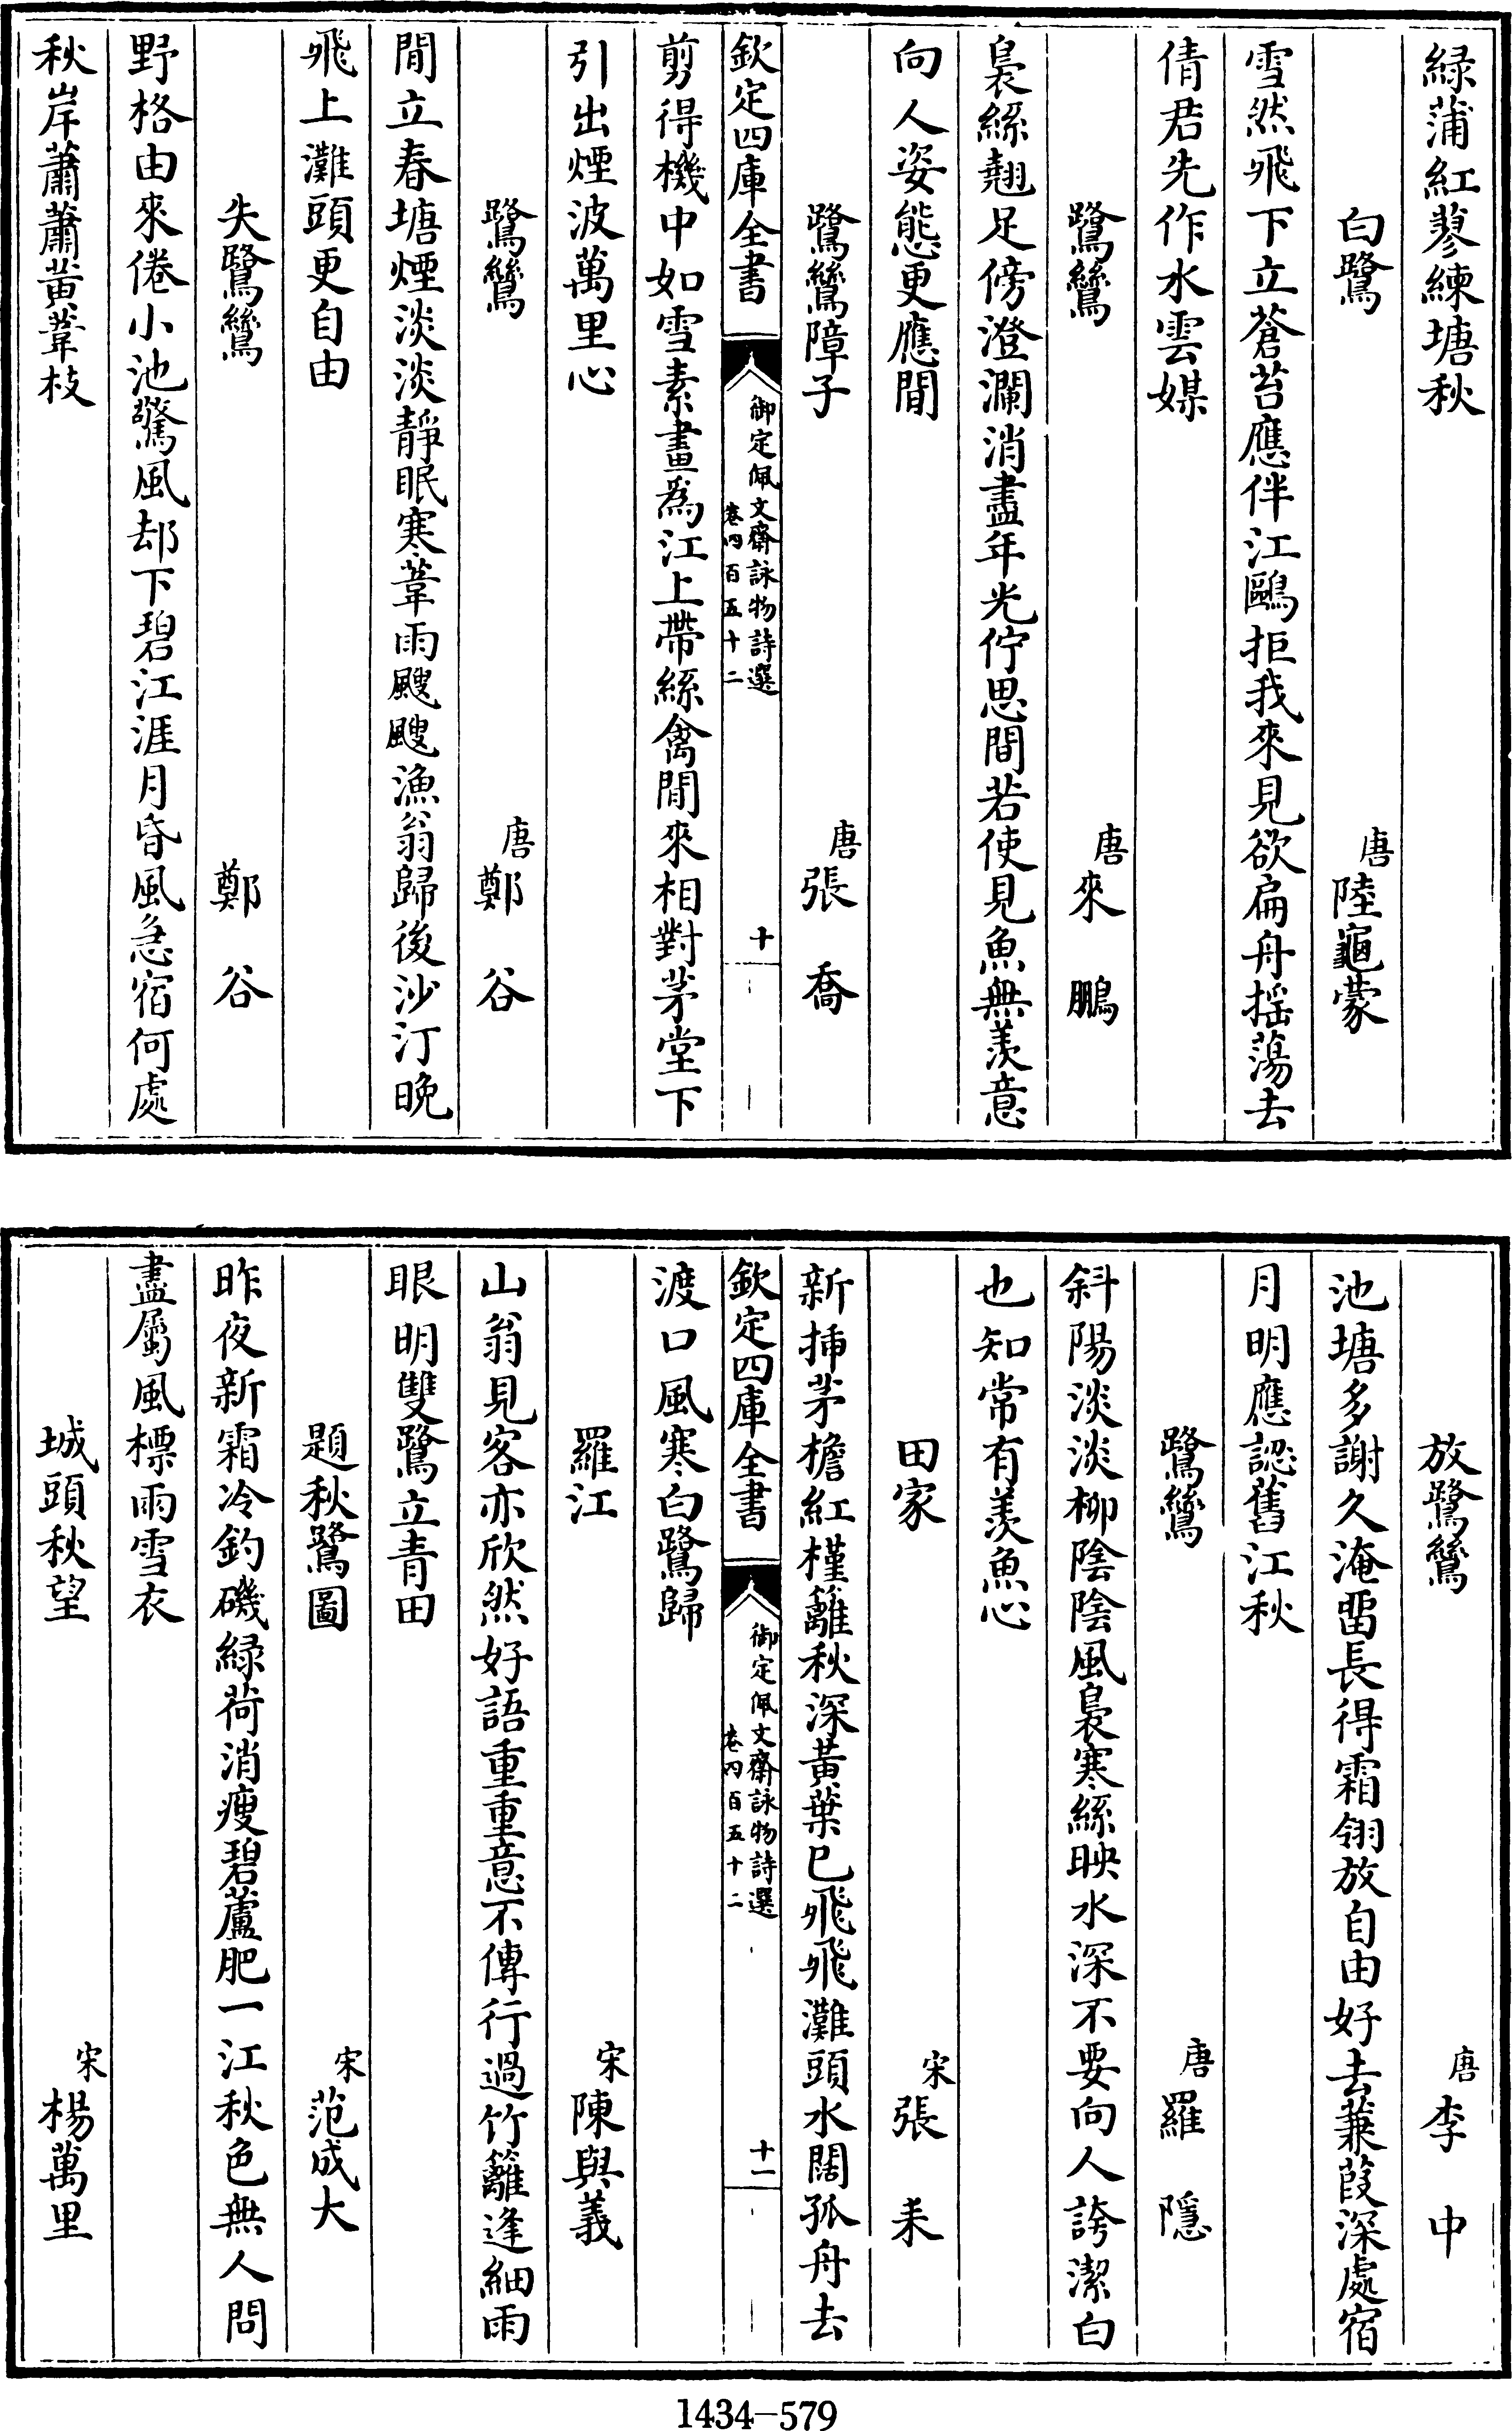 緑蒲紅蓼練塘秋
白鷺　唐陸龜蒙
雪然飛下立蒼苔應伴江鷗拒我來見欲扁舟揺蕩去
倩君先作水雲媒
鷺鷥　唐來鵬
裊絲翹足傍澄瀾消盡年光佇思間若使見魚無羡意
向人姿態更應閒
鷺鷥障子　唐張喬
欽定四庫全書　御定佩文齋詠物詩選　卷四百五十二　十
剪得機中如雪素畫爲江上帶絲禽閒來相對茅堂下
引出煙波萬里心
鷺鷥　唐鄭谷
閒立春塘煙淡淡靜眠寒葦雨颼颼漁翁歸後沙汀晩
飛上灘頭更自由
失鷺鷥　鄭谷
野格由來倦小池驚風却下碧江涯月昏風急宿何處
秋岸蕭蕭黄葦枝
放鷺鷥　唐李中
池塘多謝久淹留長得霜翎放自由好去蒹葭深處宿
月明應認舊江秋
鷺鷥　唐羅隱
斜陽淡淡柳陰陰風裊寒絲映水深不要向人誇潔白
也知常有羡魚心
田家　宋張耒
新揷茅檐紅槿籬秋深黄葉已飛飛灘頭水闊孤舟去
欽定四庫全書　御定佩文齋詠物詩選　卷四百五十二　十一
渡口風寒白鷺歸
羅江　宋陳與義
山翁見客亦欣然好語重重意不傳行過竹籬逢細雨
眼明雙鷺立青田
題秋鷺圖　宋范成大
昨夜新霜冷釣磯緑荷消瘦碧蘆肥一江秋色無人問
盡屬風標雨雪衣
城頭秋望　宋楊萬里
1434-579